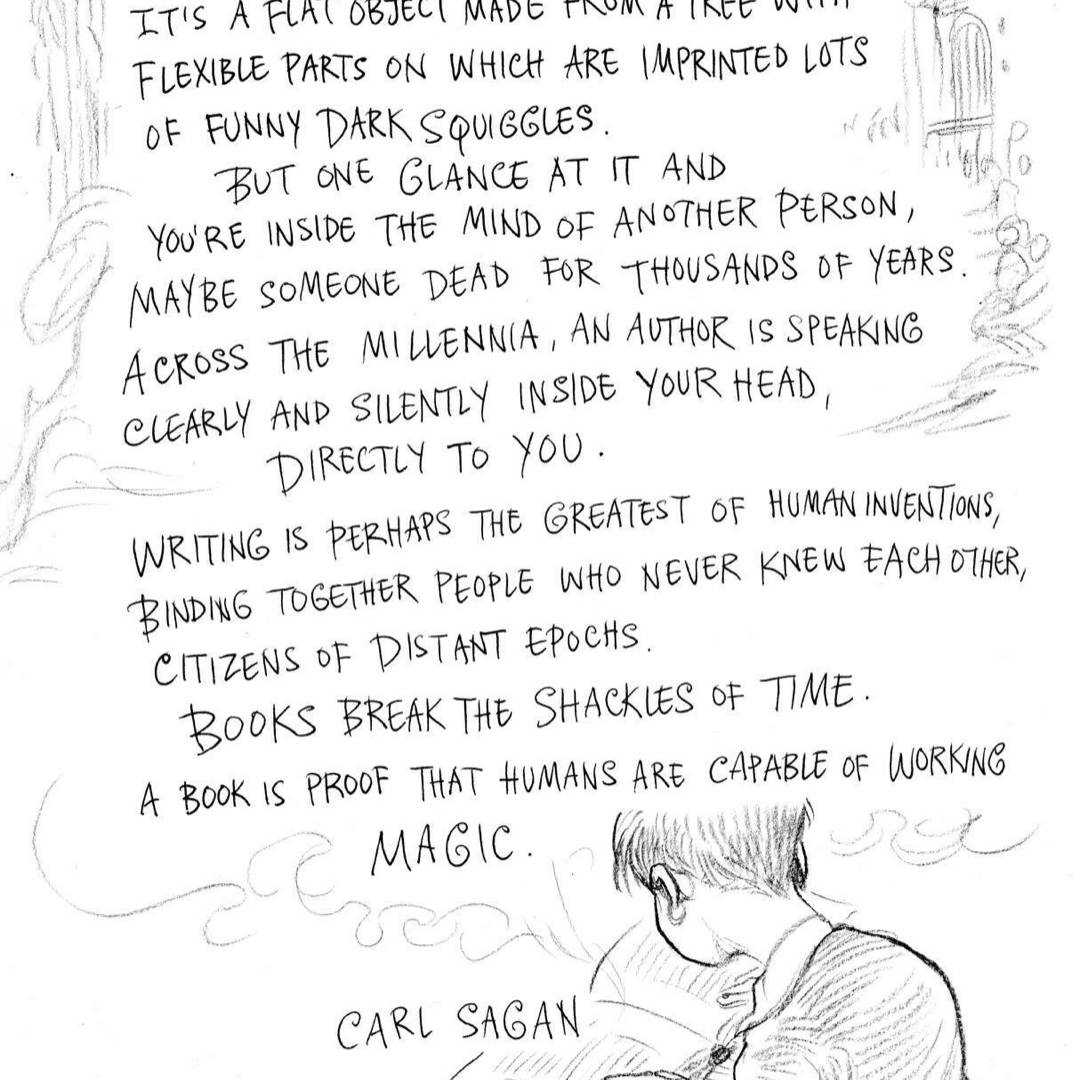 IT'S A FLAT OBJECT MADE FROM A TREE WITH
FLEXIBLE PARTS ON WHICH ARE IMPRINTED LOTS
OF FUNNY DARK SQUIGGLES.
BUT ONE GLANCE AT IT AND
YOU'RE INSIDE THE MIND OF ANOTHER PERSON,
MAYBE SOMEONE DEAD FOR THOUSANDS OF YEARS.
ACROSS THE MILLENNIA, AN AUTHOR IS SPEAKING
CLEARLY AND SILENTLY INSIDE YOUR HEAD,
DIRECTLY TO YOU.
WRITING IS PERHAPS THE GREATEST OF HUMAN INVENTIONS,
BINDING TOGETHER PEOPLE WHO NEVER KNEW EACH OTHER,
CITIZENS OF DISTANT EPOCHS.
BOOKS BREAK THE SHACKLES OF TIME.
A BOOK IS PROOF THAT HUMANS ARE CAPABLE OF WORKING
MAGIC.
CARL SAGAN